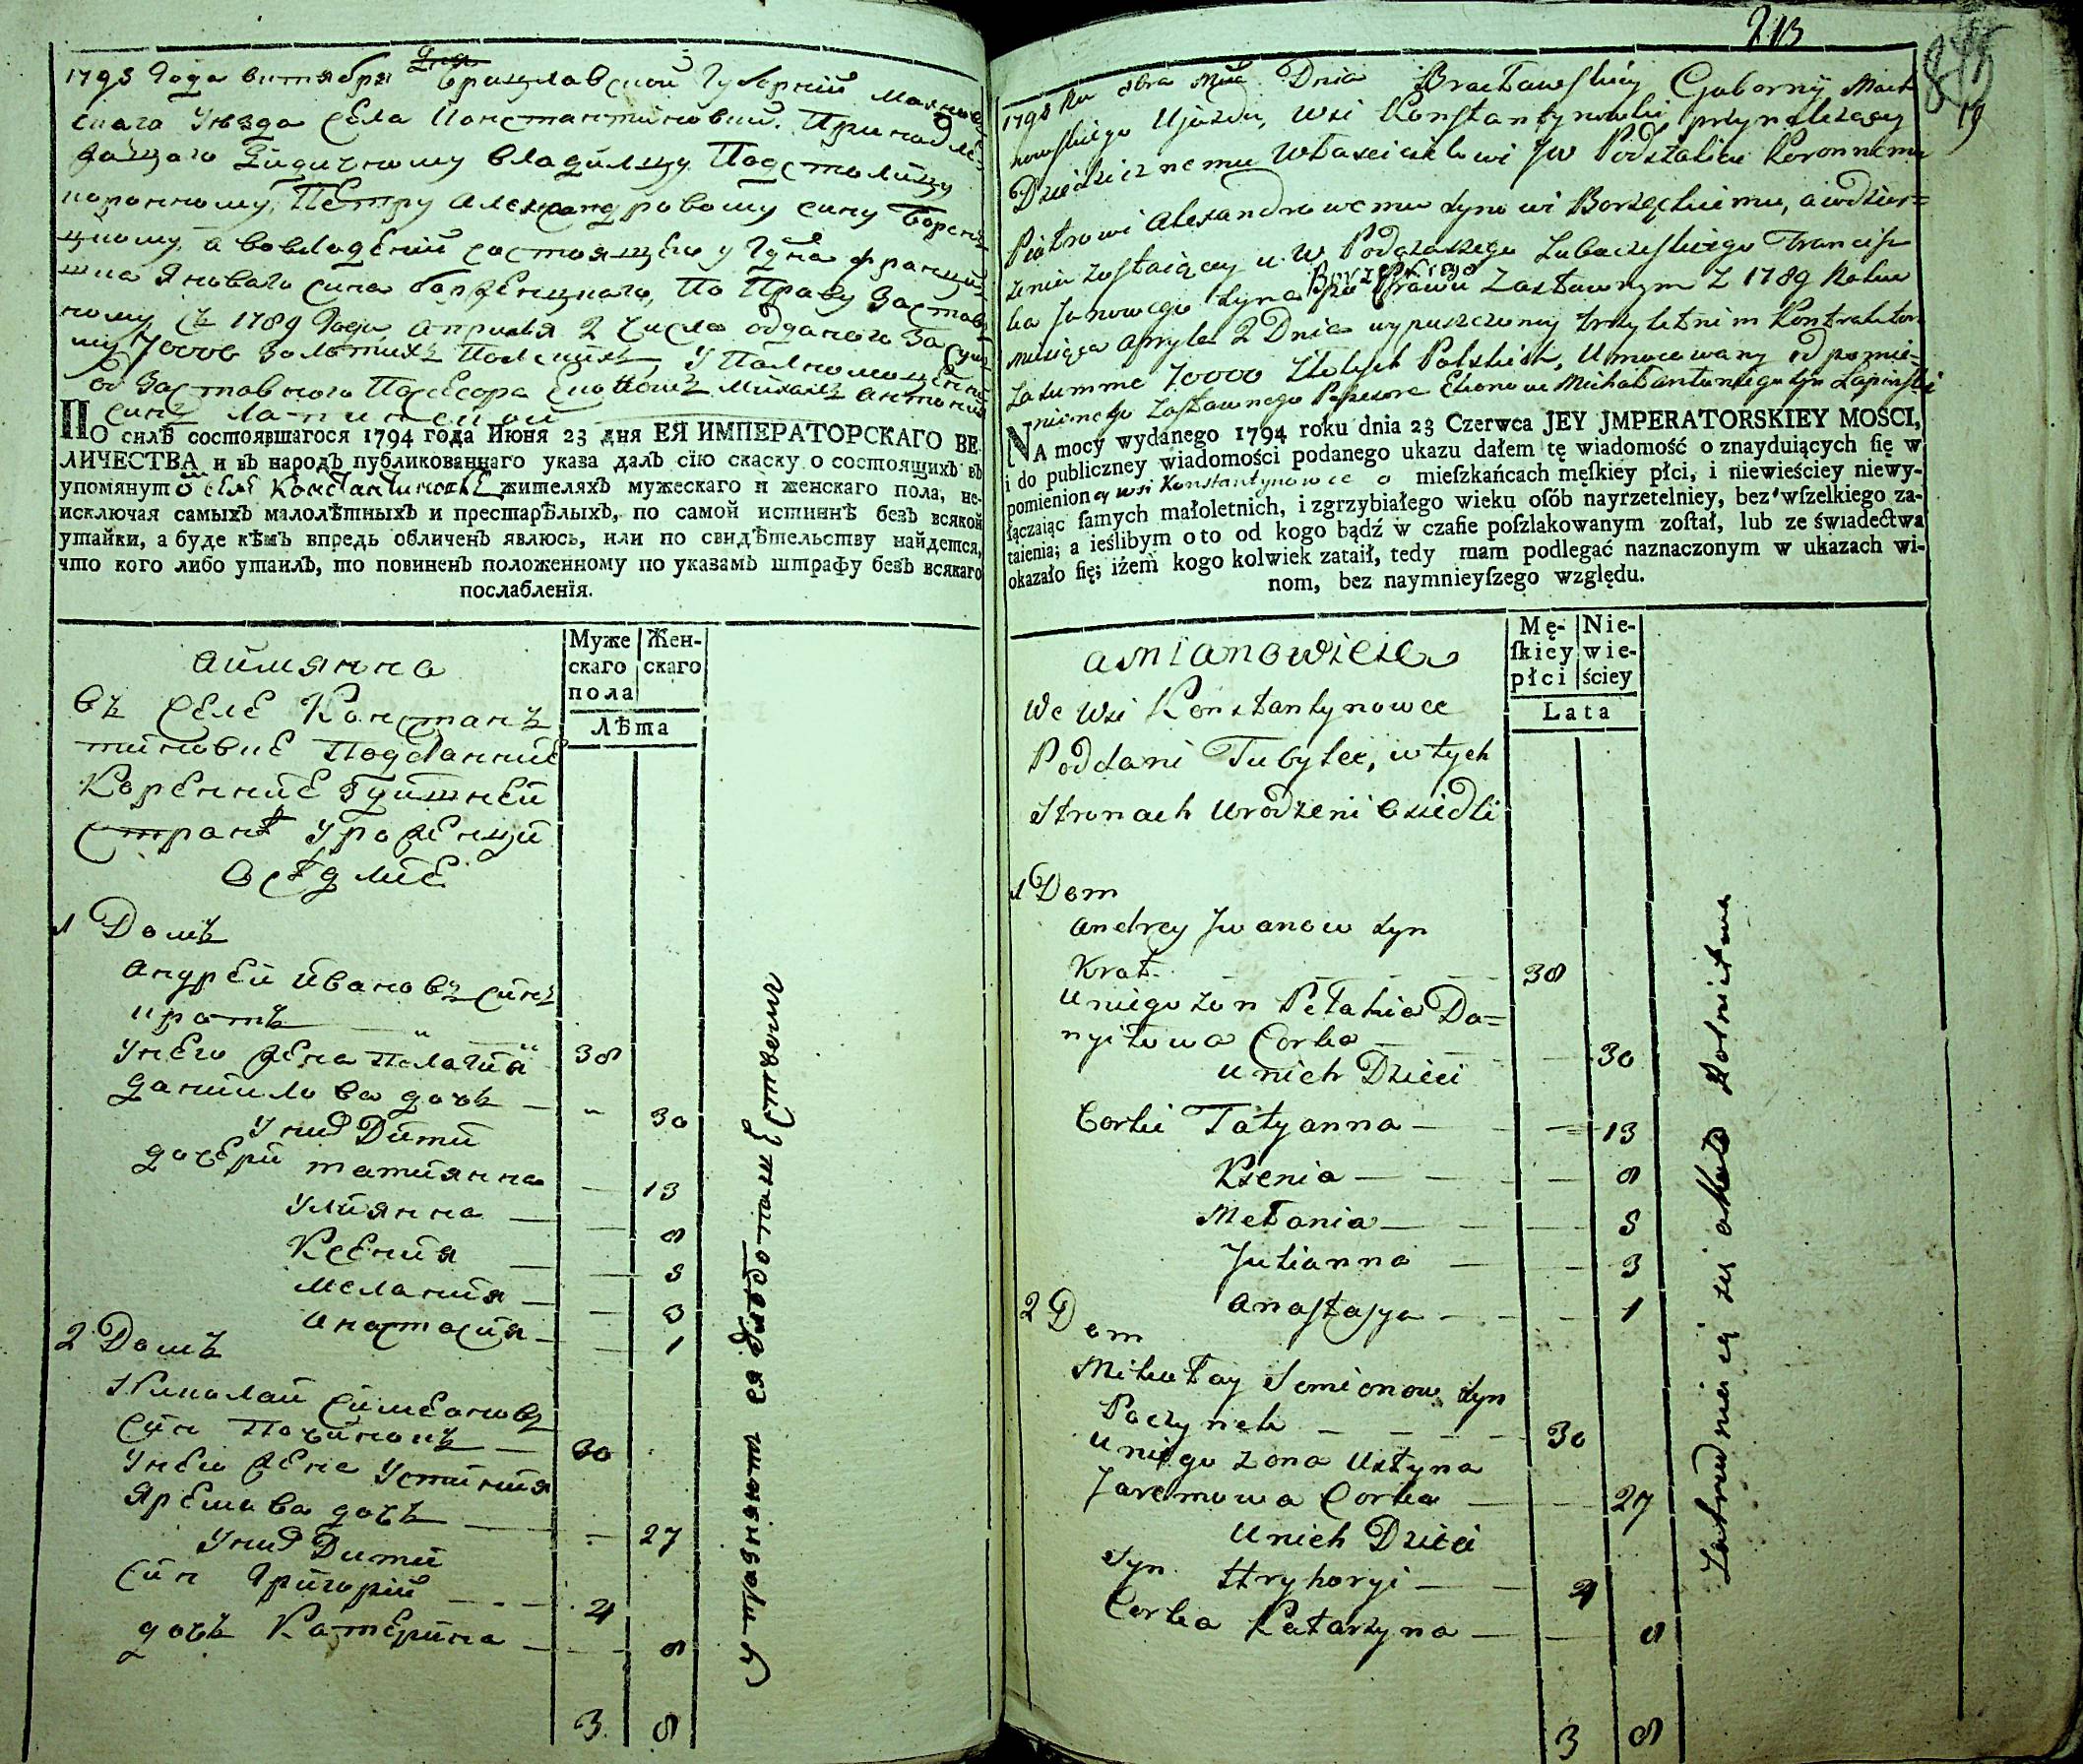 1795 Года октября Дня Брацлавской Губернiи Махнов
скаго Уезда Села Константиновки. Принадле-
жащаго Дидичному Владилцу Подстолиду
коронному, Петру Александровому сину Борен-
цкому, а вовладенiи состоящего у Г̃дна Франци-
шка Яноваго сина борженцкаго, По Праву Застав
ному Съ 1789 Года априля 2 числа отданого За сум
му 70000 Золотихъ Полскихъ, Уполномоченный
отъ Заставного Посесора Економъ Михаилъ антонiй
синъ Лапинскiй
ПО силѣ состоявшагося 1794 года Июня 23 дня ЕЯ ИМПЕРАТОРСКАГО ВЕ-
ЛИЧЕСТВА и въ народъ публикованнаго указа далъ сїю скаску о состоящихъ въ
упомянутомъ селѣ Константиновкѣ жителяхъ мужескаго и женскаго пола, не-
исключая самыхъ малолѣтныхъ и престарѣлыхъ, по самой истиннѣ безъ всякой
утайки, а буде кѣмъ впредь обличенъ явлюсь, или по свидѣтельству найдется,
что кого либо утаилъ, то повиненъ положенному по указамъ штрафу безъ всякаго
послабленїя.
аимянно
въ Селе Констанъ
тиновке Подданнiе
Кореннiе Тутшней
Странѣ Уроженци
Осѣдлiе
Муже
скаго
пола
Жен-
скаго
Лѣта
1 Домъ
Андрей Ивановъ синъ
Кратъ 38
Унего жена Пелагiя
Данилова дочь — 30
Унихъ Дити
дочери татиянна — 13
Улиянна — 8
Ксения — 5
Мелания — 3
Анастасия — 1
2 Домъ
Николай Симеоновъ
Син Почiнокъ — 30
Унего жена Устiния
Яремова дочь — 27
Унихъ Дити
Син Григорiй — 4
дочь Катерiна — 8
3 8
Упражняются вхлебопашестве
213
19
1795 Ru 8bra Mca Dnia Bracławskiey Guberny Mach
nowskiego Ujazdu, Wsi Konstantynowki, przynalezącey
Dziedzicznemu Właścicielowi JW Podstolicu Koronnemu
Piotrowi Alexandrowemu synowi Borzęckiemu, a wdzier=
żeniu zostaiącey u W Podczaszego Lubaczeskiego Francisz
ka Janowego syna Borzęckiego po Prawu Zastawnym Z 1789 Roku
miesiąca Apryla 2 Dnia wypuszczoney trzyletnim Kontraktem
za summe 70000 Złotych Polskich, Umocowany od pomie-
nionego zastawnego Possesora Ekonom Michał Antoniego syn Łapinski
NA mocy wydanego 1794 roku dnia 23 Czerwca JEY JMPERATORSKIEY MOSCI,
i do publiczney wiadomości podanego ukazu dałem tę wiadomość o znayduiących ſię w
pomienioney wsi Konstantynowce o mieſzkańcach męſkiey płci, i niewieściey niewy-
łączaiąc ſamych małoletnich, i zgrzybiałego wieku oſób nayrzetelniey, bez wſzelkiego za-
taienia; a ieślibym o to od kogo bądź w czaſie poſzlakowanym zoſtał, lub ze świadectwa
okazało ſię; iżem kogo kolwiek zataił, tedy mam podlegać naznaczonym w ukazach wi-
nom, bez naymnieyſzego względu.
a mianowicie
We Wsi Konstantynowce
Poddani Tubylce, w tych
Stronach Urodzeni Osiedli
Mę-
ſkiey
płci
Nie-
wie-
ściey
Lata
1 Dom
Andrey Jwanow syn
Krat — 38
U niego żon Pełahia Da=
nyiłowa Corka — 30
U nich Dzieci
Corki Tatyanna — 13
Ksenia — 8
Mełania — 5
Julianna — 3
Anastasya — 1
2 Dom
Mikołay Semionow syn
Poczynek — 30
U niego żona Ustyna
Jaremowa Corka — 27
U nich Dzieci
Syn Hryhoryi — 4
Corka Katarzyna — 8
3 8
Zatrudniaią się około Rolnictwa